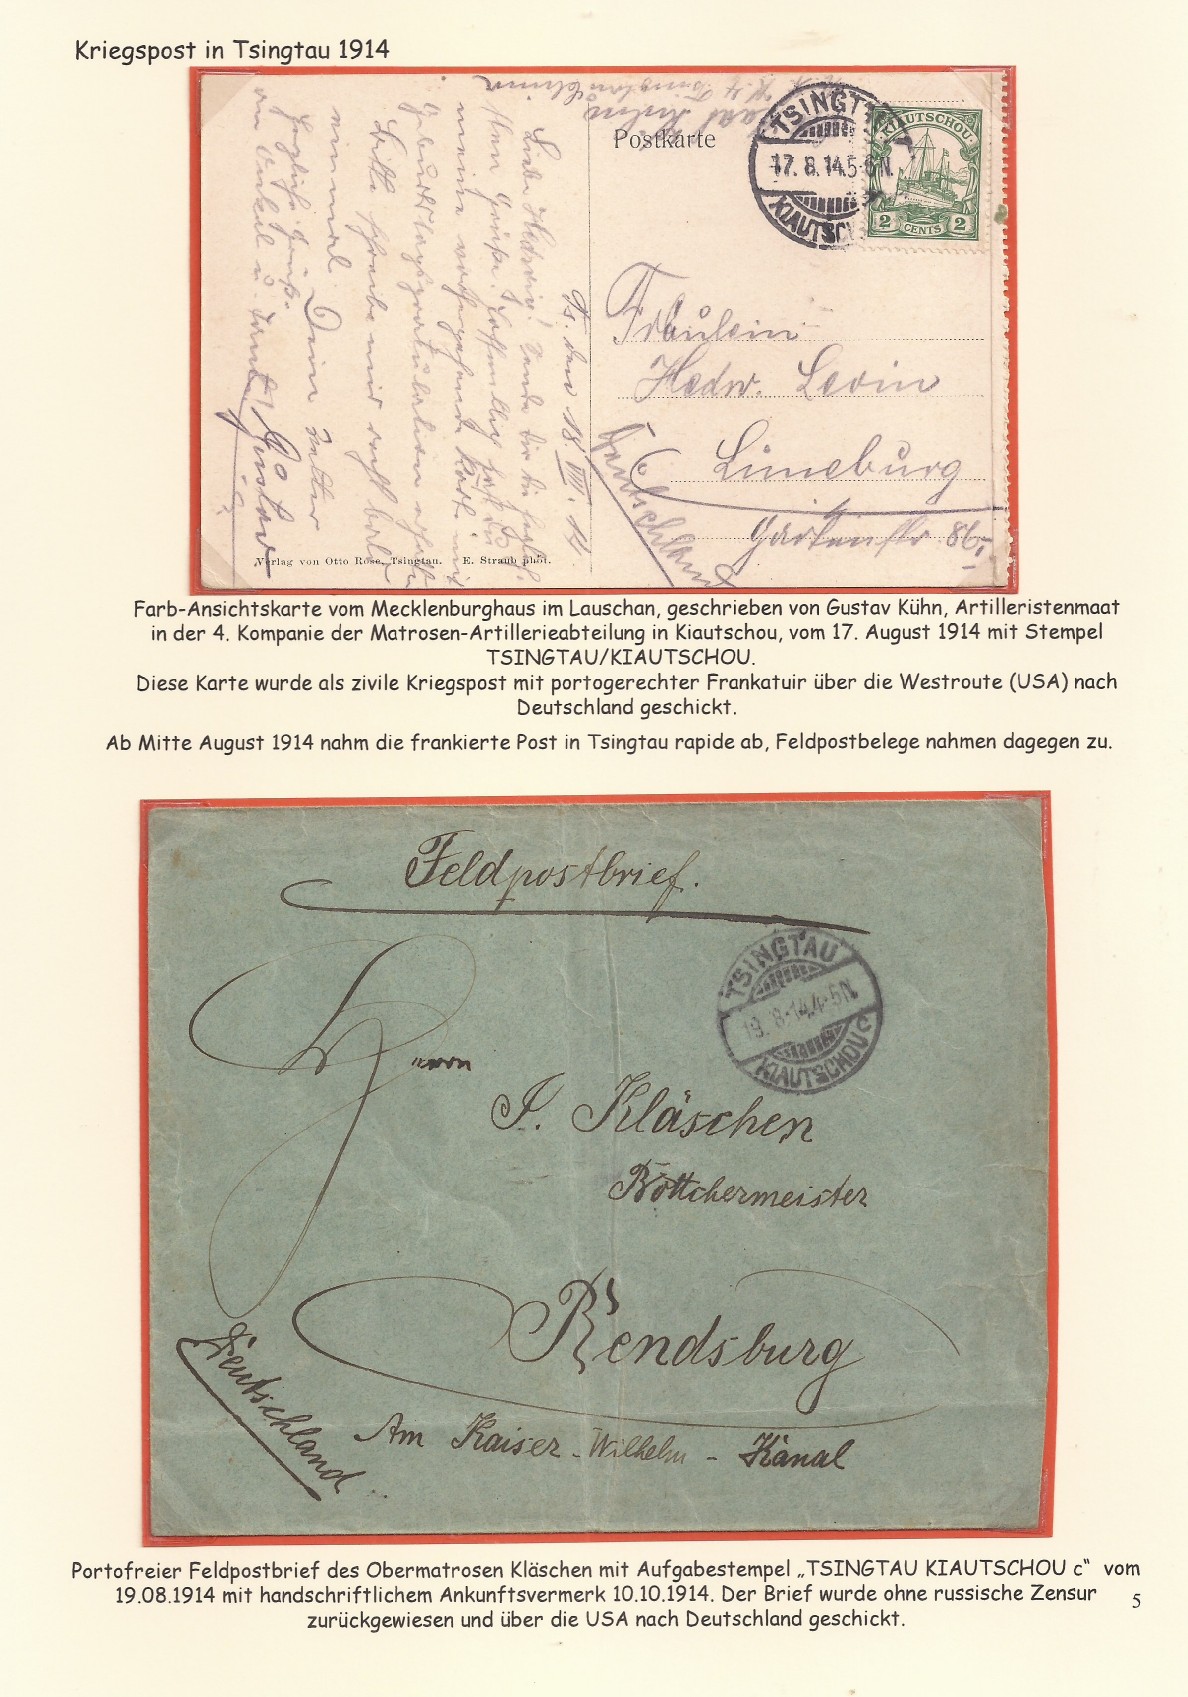 Kriegspost in Tsingtau 1914
Postkarte
TSINGT
17. 8. 14 5-6N.
KIAUTSC
KIAUTSCHOU
2 CENTS 2
Ts. den 18. VIII. 14
Liebe Hedwig! Sende dir die
meine
Geburtstagsgratulation erhalten
Bitte schreibe mir recht bald
einmal. Dein Vetter
Gustav
Herzliche Grüße
an Onkel u. Tante
Fräulein
Hedw. Levin
Lüneburg
Gartenstr 86.
Deutschland
Verlag von Otto Rose, Tsingtau. E. Straub phot.
Farb-Ansichtskarte vom Mecklenburghaus im Lauschan, geschrieben von Gustav Kühn, Artilleristenmaat
in der 4. Kompanie der Matrosen-Artillerieabteilung in Kiautschou, vom 17. August 1914 mit Stempel
TSINGTAU/KIAUTSCHOU.
Diese Karte wurde als zivile Kriegspost mit portogerechter Frankatuir über die Westroute (USA) nach
Deutschland geschickt.
Ab Mitte August 1914 nahm die frankierte Post in Tsingtau rapide ab, Feldpostbelege nahmen dagegen zu.
Feldpostbrief.
TSINGTAU
19. 8-14.4-5N.
KIAUTSCHOU c
Herrn
J. Kläschen
Böttchermeister
Rendsburg
Am Kaiser-Wilhelm-Kanal
Deutschland
Portofreier Feldpostbrief des Obermatrosen Kläschen mit Aufgabestempel „TSINGTAU KIAUTSCHOU c“ vom
19.08.1914 mit handschriftlichem Ankunftsvermerk 10.10.1914. Der Brief wurde ohne russische Zensur
zurückgewiesen und über die USA nach Deutschland geschickt.
5